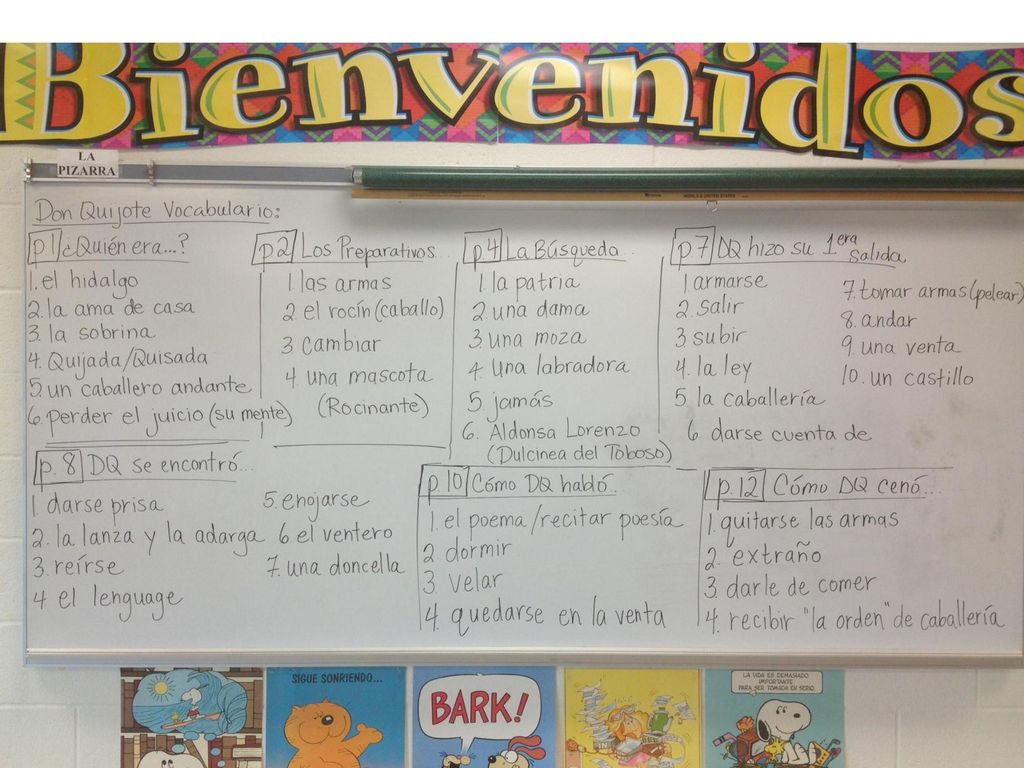 Bienvenidos
LA
PIZARRA
Don Quijote Vocabulario:
p1 ¿Quién era...?
1. el hidalgo
2. la ama de casa
3. la sobrina
4. Quijada/Quisada
5. un caballero andante
6. perder el juicio (su mente)
p2 Los Preparativos...
1 las armas
2 el rocín (caballo)
3 cambiar
4 una mascota
(Rocinante)
p4 La Búsqueda...
1 la patria
2 una dama
3 una moza
4 una labradora
5 jamás
6. Aldonsa Lorenzo
(Dulcinea del Toboso)
p.7 DQ hizo su 1era Salida
1. armarse
2. salir
3 subir
4. la ley
5. la caballería
6. darse cuenta de
7. tomar armas (pelear)
8. andar
9. una venta
10. un castillo
p. 8 DQ se encontró...
1 darse prisa
2. la lanza y la adarga
3. reírse
4 el lenguage
5. enojarse
6. el ventero
7. una doncella
p.10 Cómo DQ habló...
1. el poema/recitar poesía
2 dormir
3 velar
4. quedarse en la venta
p.12 Cómo DQ cenó...
1. quitarse las armas
2. extraño
3. darle de comer
4. recibir "la orden" de caballería
SIGUE SONRIENDO...
BARK!
LA VIDA ES DEMASIADO
IMPORTANTE
PARA SER TOMADA EN SERIO.